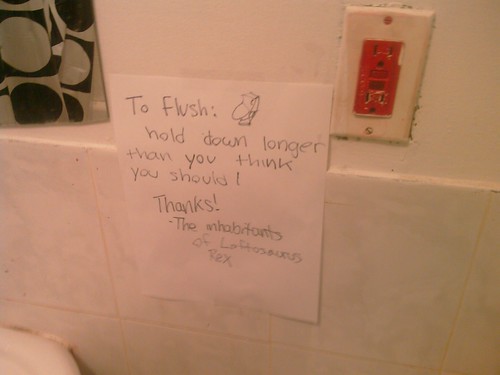 To Flush:
hold down longer
than you think
you should!
Thanks!
-The inhabitants
of Loftosaurus
Rex